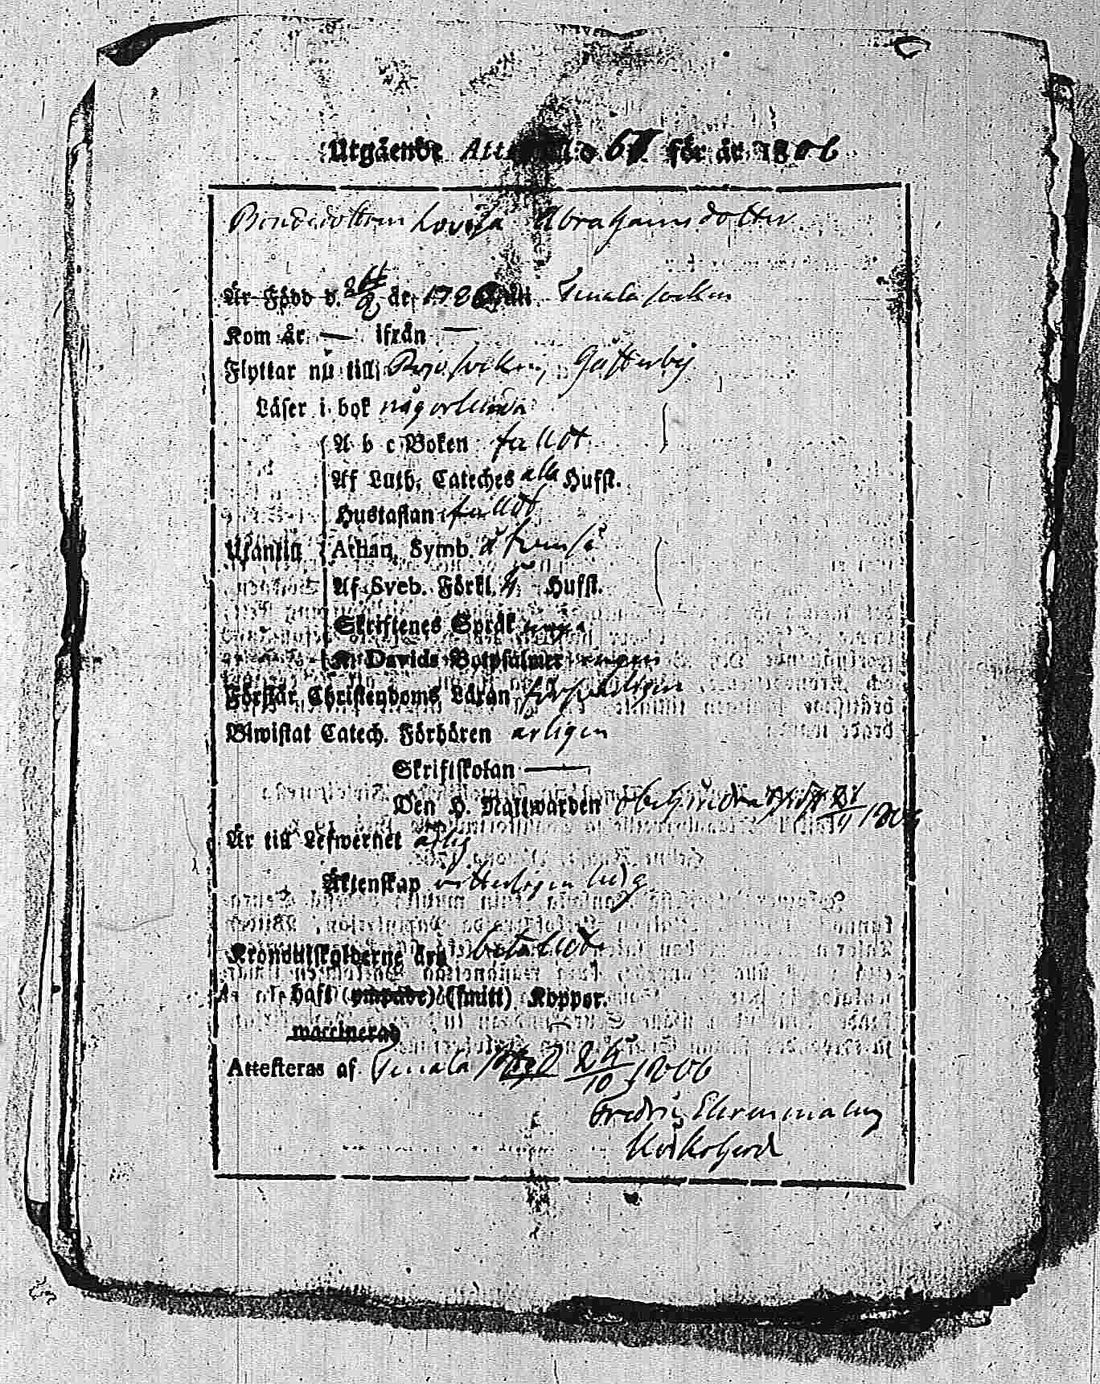 Utgående Att N:o 67 för år 1806
Bondedottren Lovisa Abrahamsdotter
Är Född d. år 178 uti Tenala socken
Kom år — ifrån —
Flyttar nu till Pojo socken, Gästerby
Läser i bok någorlunda
A b c Boken fullot
Af Luth. Cateches alla Hufst.
Hustaflan fullot
Utantill Athan. Symb.
Af Sveb. Förkl. 4 Hufst.
Skriftenes Språk
K. Davids Botpsalmer ingen
Förstår Christendoms Läran
Biwistat Catech. Förhören årligen
Skriftskolan —
Den H. Nattwarden obehindrad sist
Är till Lefwernet ärlig
Äktenskap vitterligen ledig
Kronoutskylderne äro betallot
haft (ympade) (smitt) Koppor.
waccinerad
Attesteras af Tenala 24/10 1806
Fredric Ehrenmalm
Kyrkoherd